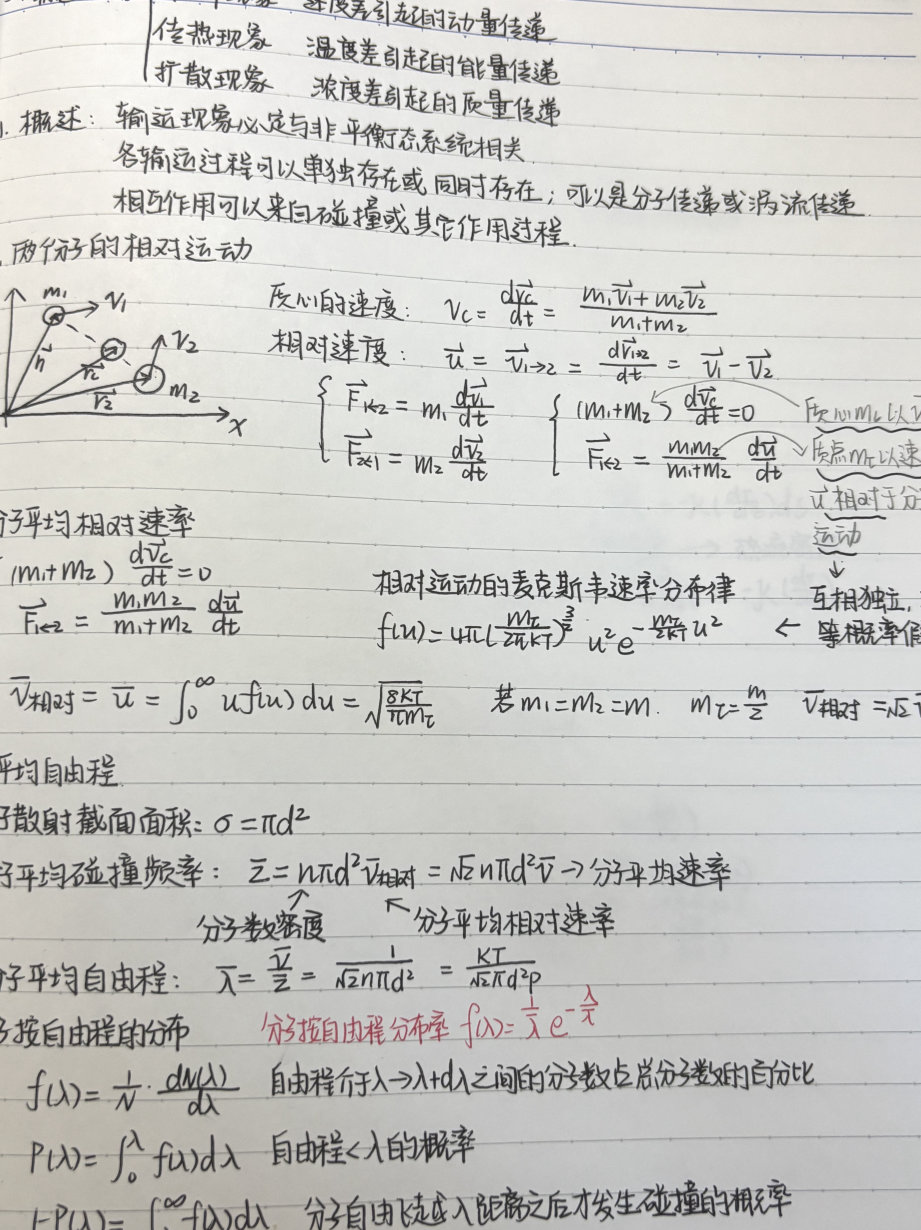 速度差引起的动量传递
传热现象 温度差引起的能量传递
扩散现象 浓度差引起的质量传递
1. 概述: 输运现象必定与非平衡态系统相关
各输运过程可以单独存在或同时存在; 可以是分子传递或涡流传递
相互作用可以来自碰撞或其它作用过程.
两个分子的相对运动
m₁ v₁ v₂ m₂ r₁ r_c r₂ x
质心的速度: v_C = dr_c/dt = (m₁v₁+m₂v₂)/(m₁+m₂)
相对速度: u = v₁→₂ = dr₁→₂/dt = v₁ - v₂
F₁←₂ = m₁ dv₁/dt (m₁+m₂) dv_c/dt = 0 质心m_c以
F₂←₁ = m₂ dv₂/dt F₁←₂ = m₁m₂/(m₁+m₂) du/dt 质点m_τ以速
u相对于分
运动
分子平均相对速率
(m₁+m₂) dv_c/dt = 0
F₁←₂ = m₁m₂/(m₁+m₂) du/dt
相对运动的麦克斯韦速率分布律 互相独立,
f(u) = 4π(m_τ/2πKT)^(3/2) u² e^(-m_τ/2KT u²) ← 等概率
v̄相对 = ū = ∫₀^∞ u f(u) du = √(8KT/πm_τ) 若 m₁=m₂=m. m_τ = m/2 v̄相对 = √2 v̄
平均自由程
子散射截面面积: σ = πd²
子平均碰撞频率: z̄ = nπd²v̄相对 = √2nπd²v̄ → 分子平均速率
分子数密度 分子平均相对速率
分子平均自由程: λ̄ = v̄/z̄ = 1/(√2nπd²) = KT/(√2πd²p)
子按自由程的分布 分子按自由程分布率 f(λ) = 1/λ̄ e^(-λ/λ̄)
f(λ) = 1/N · dN(λ)/dλ 自由程介于λ→λ+dλ之间的分子数占总分子数的百分比
P(λ) = ∫₀^λ f(λ)dλ 自由程<λ的概率
1-P(λ) = ∫^∞ f(λ)dλ 分子自由飞走过λ距离之后才发生碰撞的概率